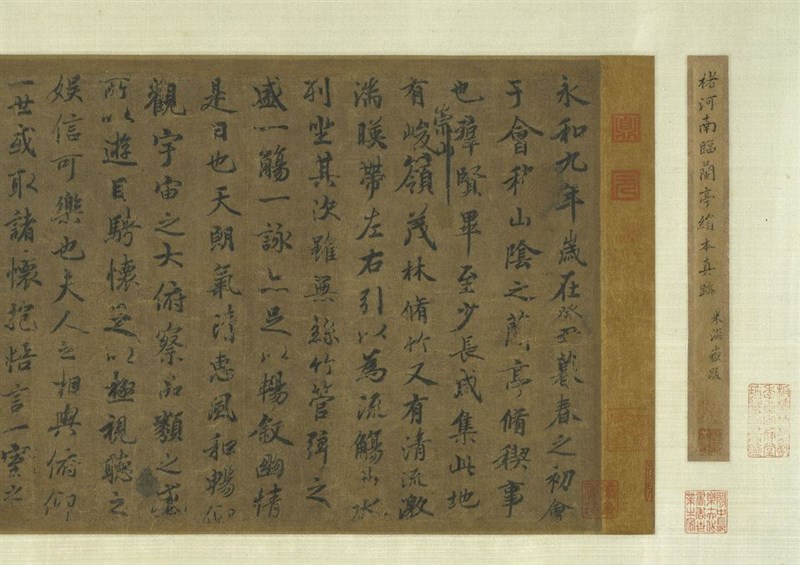 褚河南臨蘭亭絹本真跡 米海嶽跋
永和九年歲在癸丑暮春之初會
于會稽山陰之蘭亭脩稧事
也羣賢畢至少長咸集此地
有崇山峻嶺茂林脩竹又有清流激
湍暎帶左右引以為流觴曲水
列坐其次雖無絲竹管弦之
盛一觴一詠亦足以暢敘幽情
是日也天朗氣清惠風和暢仰
觀宇宙之大俯察品類之盛
所以遊目騁懷足以極視聽之
娛信可樂也夫人之相與俯仰
一世或取諸懷抱悟言一室之